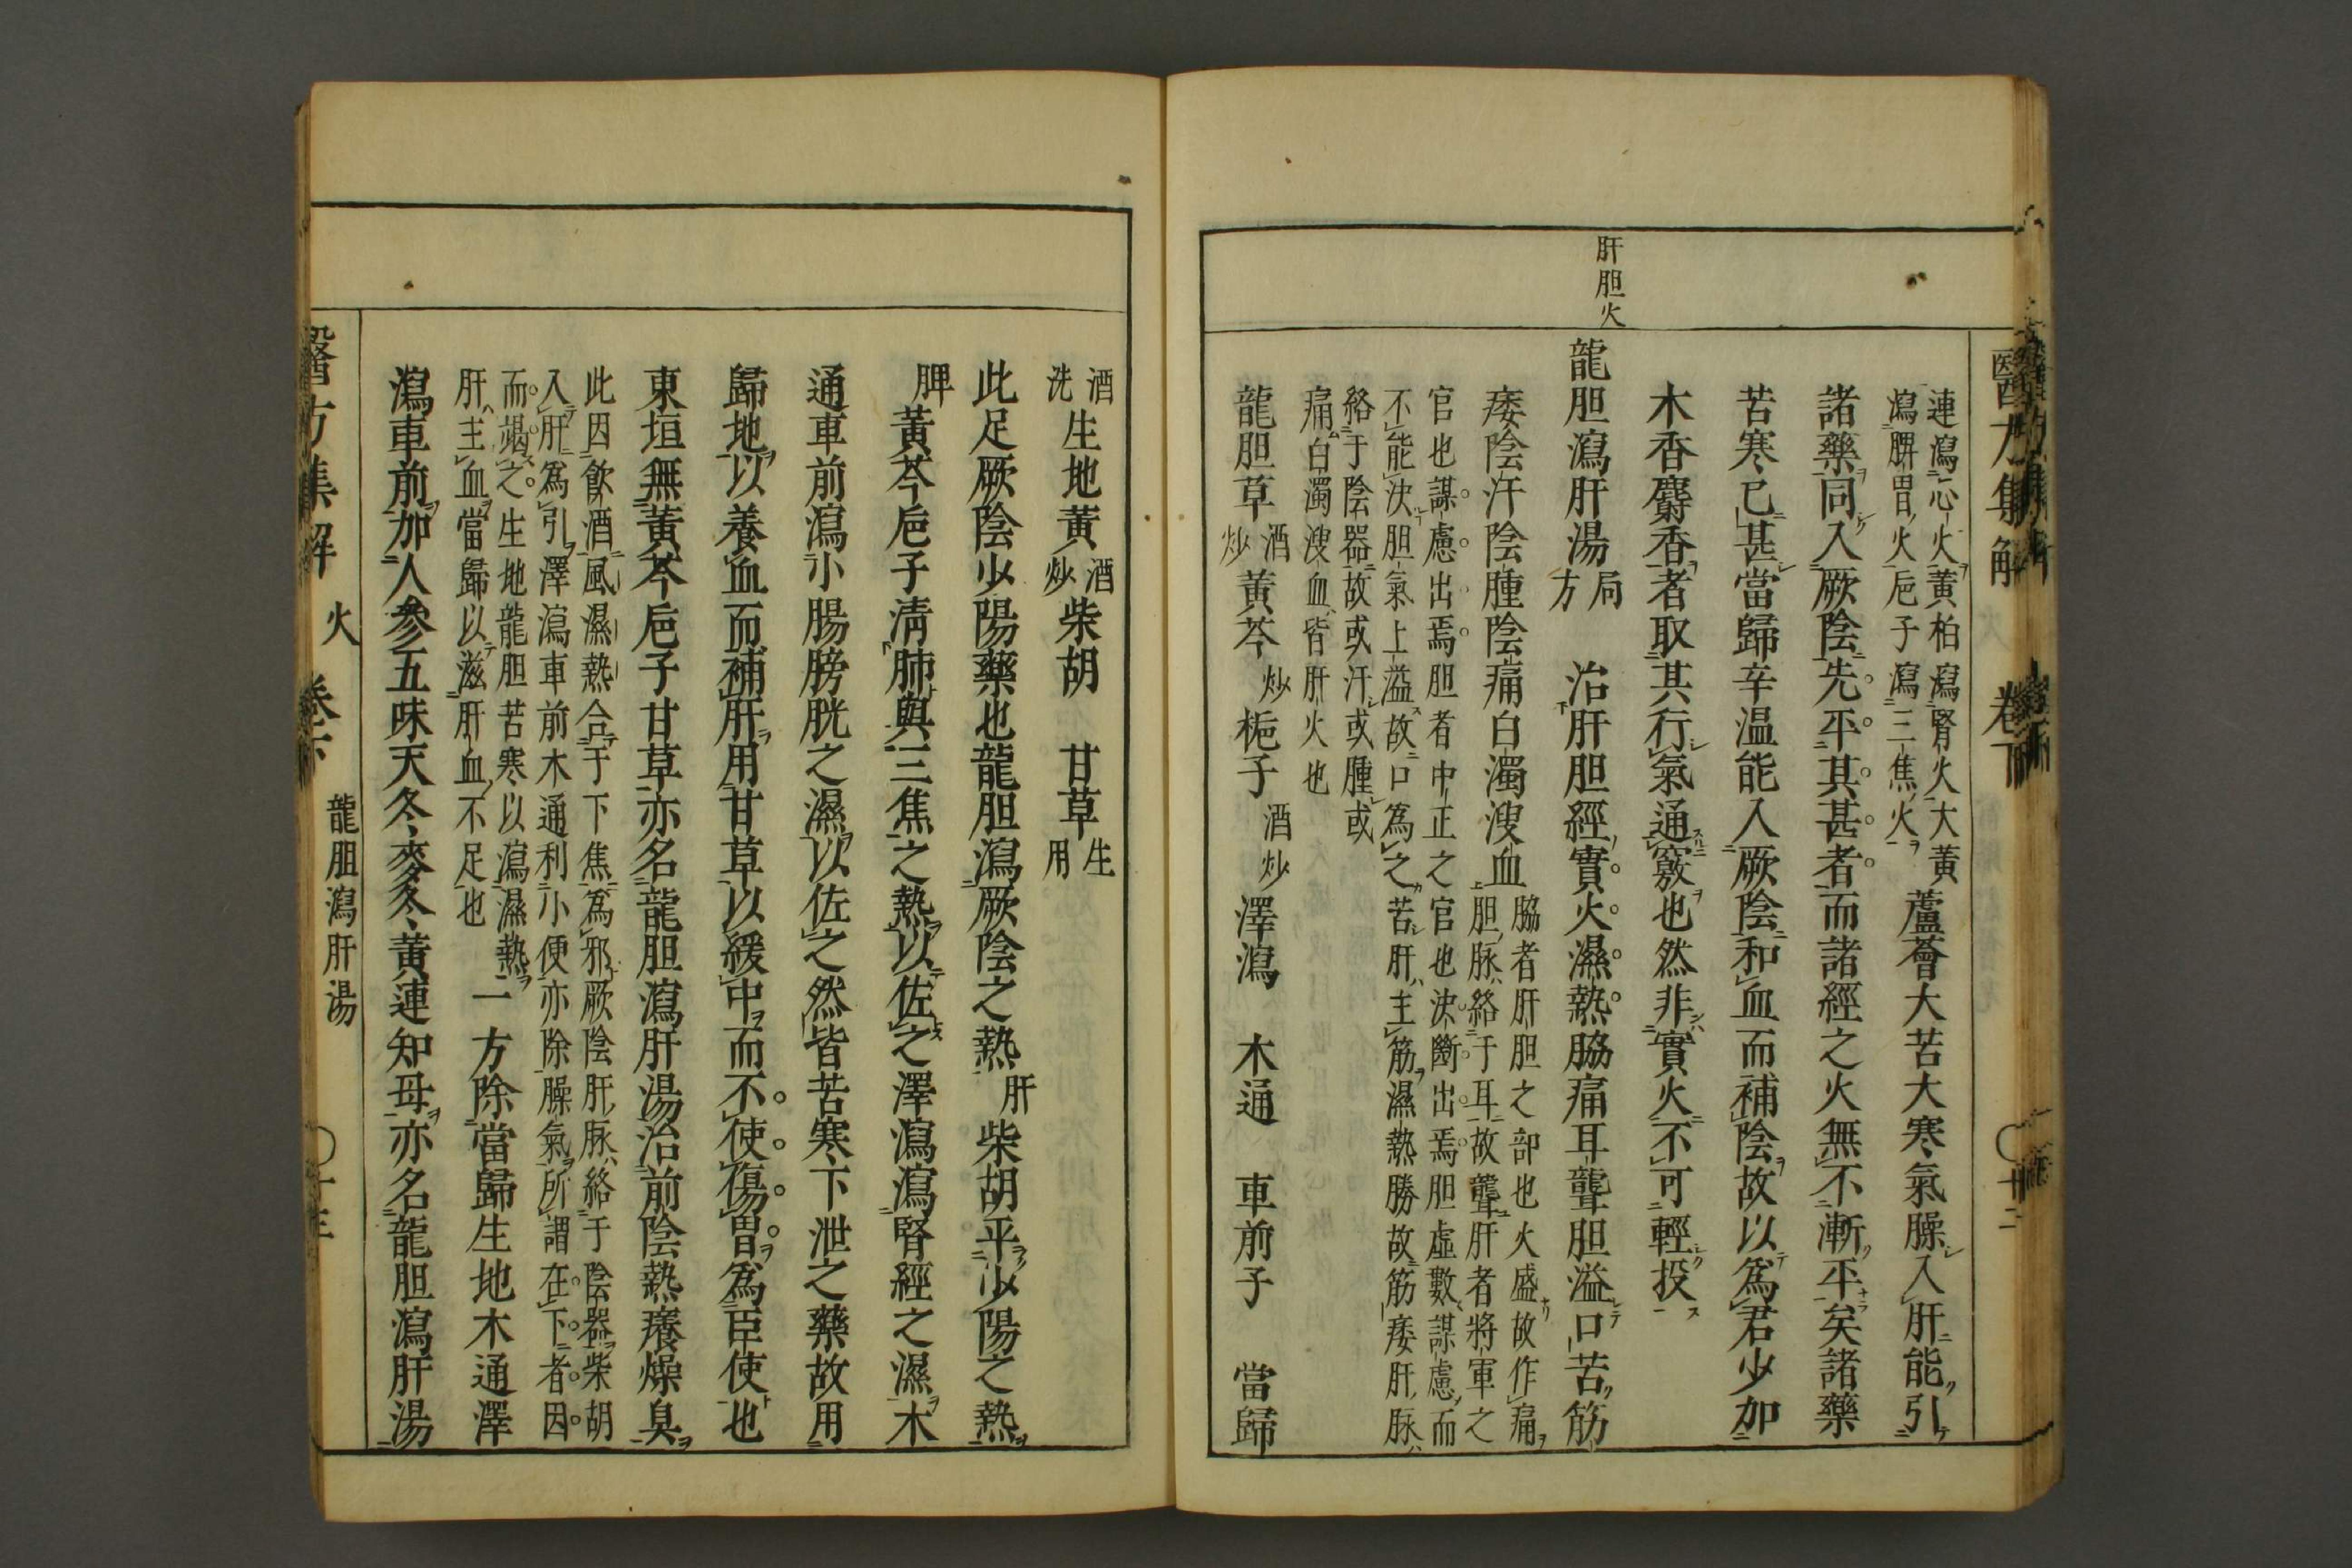 醫方集解 卷下 〇十二
連瀉心火黃柏瀉腎火大黃
瀉脾胃火巵子瀉三焦火
蘆薈大苦大寒氣臊入肝能引
諸藥同入厥陰先平其甚者而諸經之火無不漸平矣諸藥
苦寒已甚當歸辛温能入厥陰和血而補陰故以為君少加
木香麝香者取其行氣通竅也然非實火不可輕投
肝胆火
龍胆瀉肝湯局方 治肝胆經實火濕熱脇痛耳聾胆溢口苦筋
痿陰汗陰腫陰痛白濁溲血
脇者肝胆之部也火盛故作痛
胆脉絡于耳故聾肝者將軍之
官也謀慮出焉胆者中正之官也決斷出焉胆虛數謀慮而
不能決胆氣上溢故口為之苦肝主筋濕熱勝故筋痿肝脉
絡于陰器故或汗或腫或
痛白濁溲血皆肝火也
龍胆草酒炒黃芩炒梔子酒炒澤瀉 木通 車前子 當歸
酒洗生地黃酒炒柴胡 甘草生用
此足厥陰少陽藥也龍胆瀉厥陰之熱肝柴胡平少陽之熱
脾黃芩巵子淸肺與三焦之熱以佐之澤瀉瀉腎經之濕木
通車前瀉小腸膀胱之濕以佐之然皆苦寒下泄之藥故用
歸地以養血而補肝用甘草以緩中而不使傷胃為臣使也
東垣無黃芩巵子甘草亦名龍胆瀉肝湯治前陰熱癢燥臭
此因飲酒風濕熱合于下焦為邪厥陰肝脉絡于陰器柴胡
入肝為引澤瀉車前木通利小便亦除臊氣所謂在下者因
而竭之生地龍胆苦寒以瀉濕熱
肝主血當歸以滋肝血不足也
一方除當歸生地木通澤
瀉車前加人參五味天冬麥冬黃連知母亦名龍胆瀉肝湯
醫方集解 火 卷下 龍胆瀉肝湯 〇十三